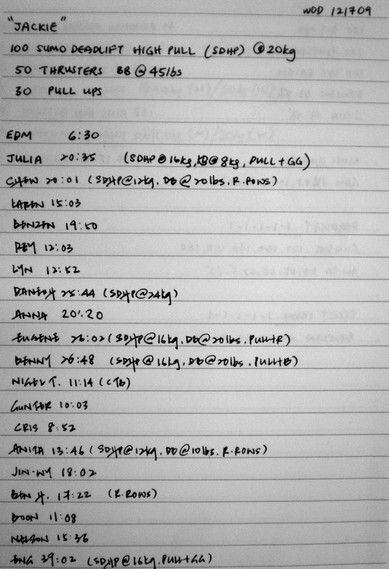 WOD 121709
"JACKIE"
100 SUMO DEADLIFT HIGH PULL (SDHP) @ 20kg
50 THRUSTERS BB @ 45lbs
30 PULL UPS
EDM 6:30
JULIA 20:35 (SDHP@16kg, KB@8kg, PULL+GG)
20:01 (SDHP@12kg, DB@20lbs, R.ROWS)
KAREN 15:03
BENZEN 19:50
REY 12:03
LYN 12:52
DANESH 25:44 (SDHP@24kg)
ANNA 20:20
EUGENE 26:02 (SDHP@16kg, DB@20lbs, PULL+R)
BENNY 26:48 (SDHP@16kg, DB@20lbs, PULL+B)
NIGEL T. 11:14 (CTB)
GUNTER 10:03
CRIS 8:52
ANITA 13:46 (SDHP@12kg, DB@10lbs, R.ROWS)
JIN-NY 18:02
BEN H. 17:22 (R.ROWS)
BOON 11:08
NELSON 15:36
ENG 39:02 (SDHP@16kg, PULL+GG)